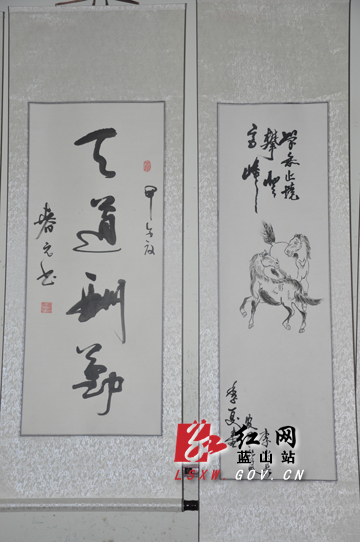 甲午秋
天道酬勤
春元书
学无止境
攀登
高峰
红网
蓝山站
LSXW.GOV.CN